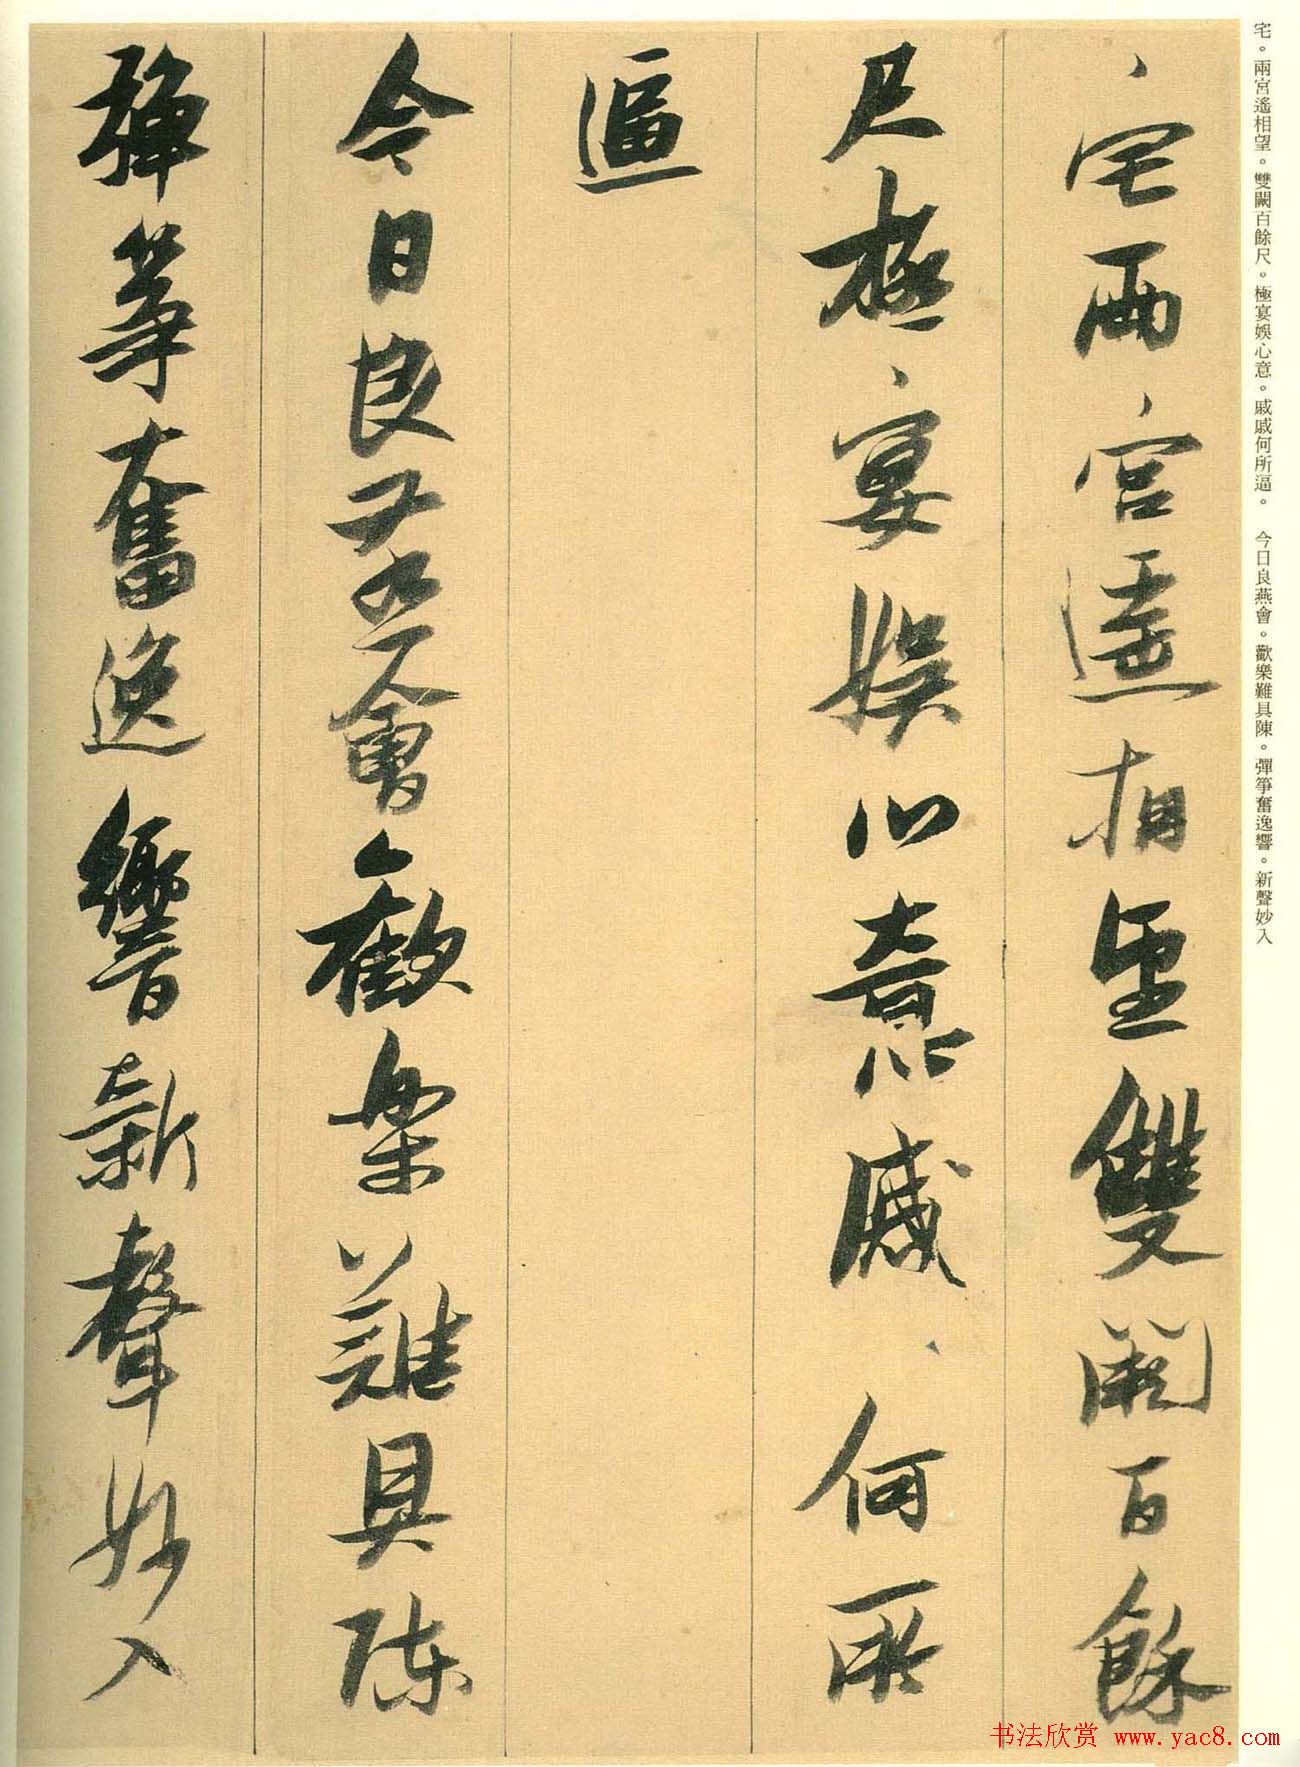 宅。兩宮遙相望。雙闕百餘尺。極宴娛心意。戚戚何所逼。　今日良燕會。歡樂難具陳。彈箏奮逸響。新聲妙入
宅兩宮遙相望雙闕百餘
尺極宴娛心意戚、何所
逼
今日良燕會歡樂難具陳
彈箏奮逸響新聲妙入
书法欣赏 www.yac8.com